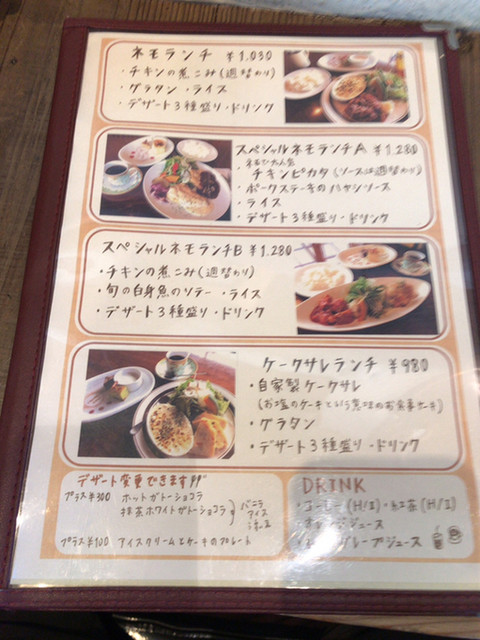 ネモランチ ¥1,030
・チキンの煮こみ(週替わり)
・グラタン ・ライス
・デザート3種盛り・ドリンク
スペシャルネモランチA ¥1,280
チキンピカタ(ソースは週替わり)
・ポークステーキのハヤシソース
・ライス
・デザート3種盛り・ドリンク
スペシャルネモランチB ¥1,280
・チキンの煮こみ(週替わり)
・旬の白身魚のソテー ・ライス
・デザート3種盛り・ドリンク
ケークサレランチ ¥980
・自家製ケークサレ
(お塩のケーキという意味のお食事ケーキ)
・グラタン
・デザート3種盛り・ドリンク
デザート変更できます
プラス¥300 ホットガトーショコラ
抹茶ホワイトガトーショコラ
バニラ
アイス
プラス¥100 アイスクリームとケーキのプレート
DRINK
・コーヒー(H/I)・紅茶(H/I)
オレンジジュース
グレープジュース